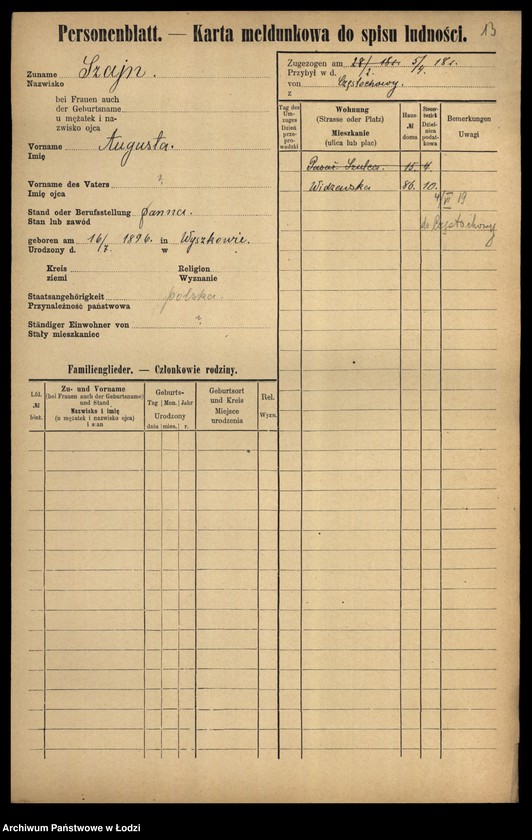 Personenblatt. — Karta meldunkowa do spisu ludności.
13
Zuname Szajn.
Nazwisko
bei Frauen auch
der Geburtsname
u mężatek i na-
zwisko ojca
Vorname Augusta.
Imię
Vorname des Vaters ?
Imię ojca
Stand oder Berufsstellung panna.
Stan lub zawód
geboren am 16/7 1896. in Wyszkowie.
Urodzony d. w
Kreis Religion
ziemi Wyznanie
Staatsangehörigkeit polska.
Przynależność państwowa
Ständiger Einwohner von ?
Stały mieszkaniec
Zugezogen am 28/2. 5/4. 18 r.
Przybył w d.
von Częstochowy.
z
Tag des Um-zuges Dzień prze-prowadzki
Wohnung
(Strasse oder Platz)
Mieszkanie
(ulica lub plac)
Haus- № domu
Steuer-bezirk Dziel-nica podat-kowa
Bemerkungen
Uwagi
15. 4.
Widzewska 86. 10.
4/VI 19
do Częstochowy
Familienglieder. — Członkowie rodziny.
Lfd. № bież.
Zu- und Vorname
(bei Frauen auch der Geburtsname)
und Stand
Nazwisko i imię
(u mężatek i nazwisko ojca)
i stan
Geburts-
Tag Mon. Jahr
Urodzony
dnia mies. r.
Geburtsort
und Kreis
Miejsce
urodzenia
Rel.
Wyzn.
Archiwum Państwowe w Łodzi